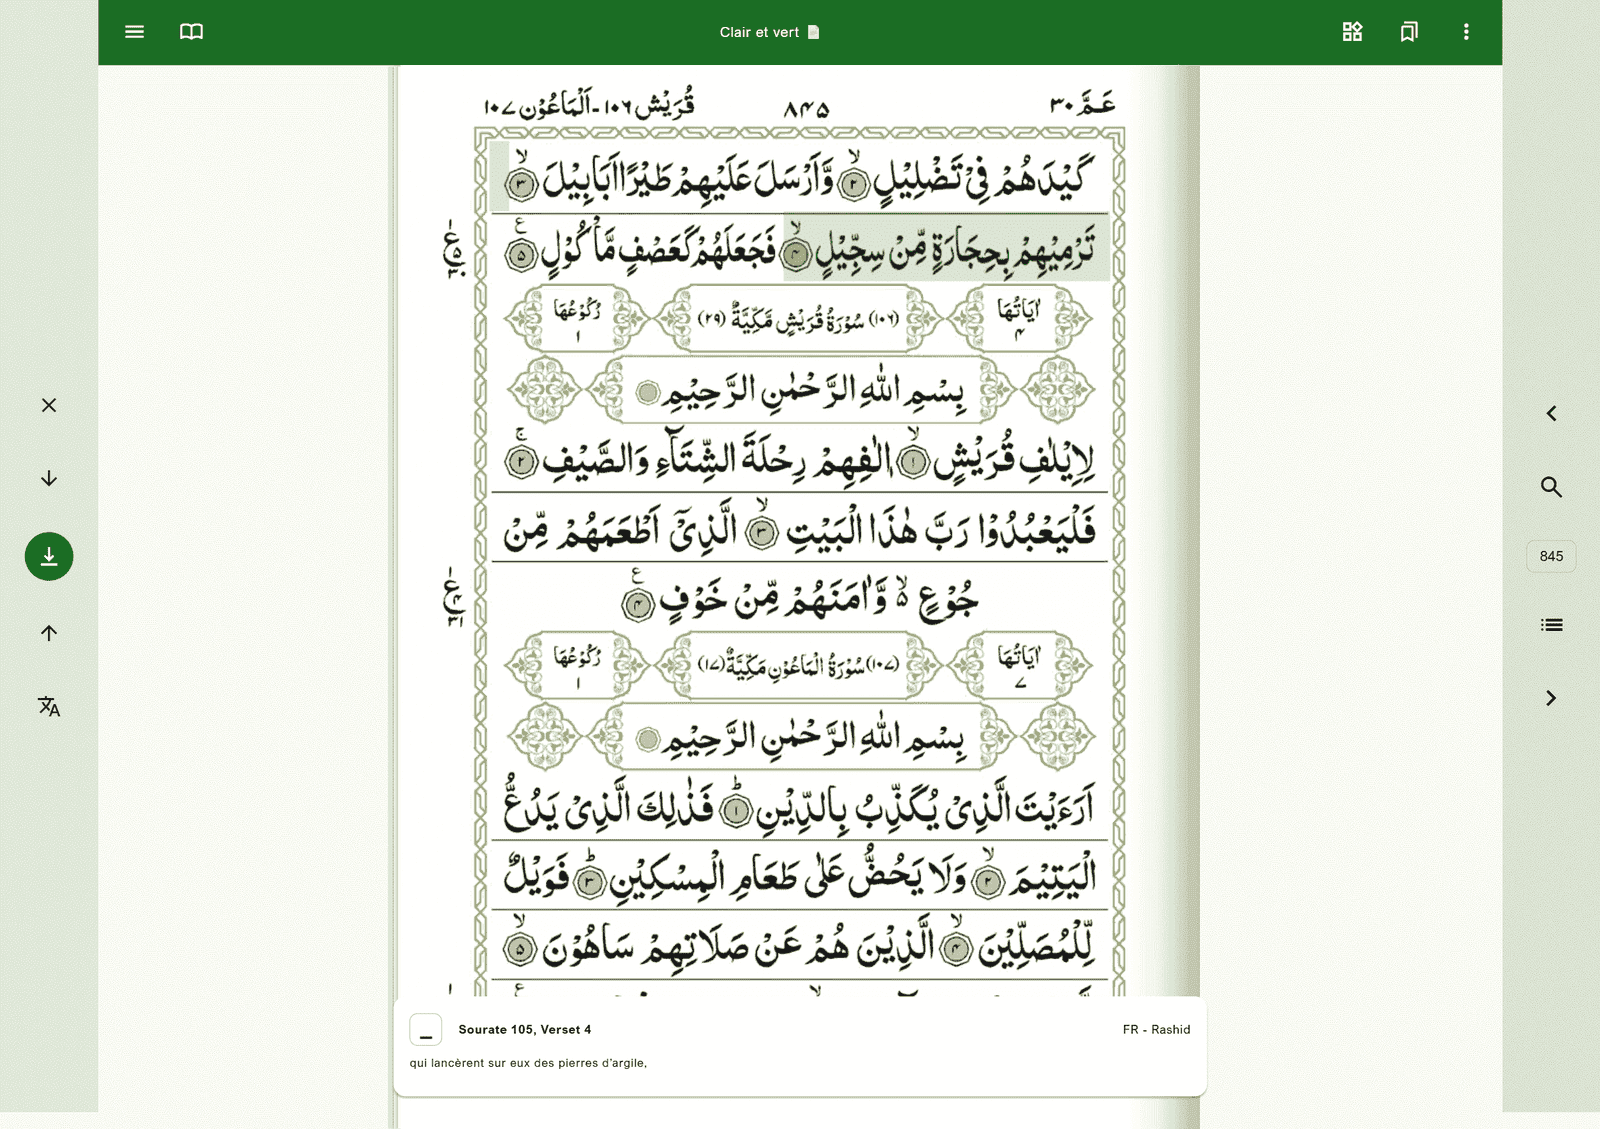 Clair et vert
عَمَّ ٣٠
٨۴۵
قُرَيْش ١٠٦ - اَلْمَاعُوْن ١٠٧
كَيْدَهُمْ فِيْ تَضْلِيْلٍ ۙ۲ وَّاَرْسَلَ عَلَيْهِمْ طَيْرًا اَبَابِيْلَ ۙ۳
تَرْمِيْهِمْ بِحِجَارَةٍ مِّنْ سِجِّيْلٍ ۙ۴ فَجَعَلَهُمْ كَعَصْفٍ مَّاْكُوْلٍ ۵
اٰيَاتُهَا ۴
(١٠٦) سُوْرَةُ قُرَيْشٍ مَّكِّيَّةٌ (٢٩)
رُكُوْعُهَا ١
بِسْمِ اللّٰهِ الرَّحْمٰنِ الرَّحِيْمِ
لِاِيْلٰفِ قُرَيْشٍ ۙ۱ اٖلٰفِهِمْ رِحْلَةَ الشِّتَآءِ وَالصَّيْفِ ۚ۲
فَلْيَعْبُدُوْا رَبَّ هٰذَا الْبَيْتِ ۙ۳ الَّذِيْٓ اَطْعَمَهُمْ مِّنْ
جُوْعٍ ۙ۬ وَّاٰمَنَهُمْ مِّنْ خَوْفٍ ۴
اٰيَاتُهَا ٧
(١٠٧) سُوْرَةُ الْمَاعُوْنِ مَكِّيَّةٌ (١٧)
رُكُوْعُهَا ١
بِسْمِ اللّٰهِ الرَّحْمٰنِ الرَّحِيْمِ
اَرَءَيْتَ الَّذِيْ يُكَذِّبُ بِالدِّيْنِ ؕ۱ فَذٰلِكَ الَّذِيْ يَدُعُّ
الْيَتِيْمَ ۙ۲ وَلَا يَحُضُّ عَلٰى طَعَامِ الْمِسْكِيْنِ ؕ۳ فَوَيْلٌ
لِّلْمُصَلِّيْنَ ۙ۴ الَّذِيْنَ هُمْ عَنْ صَلَاتِهِمْ سَاهُوْنَ ۙ۵
845
Sourate 105, Verset 4
FR - Rashid
qui lancèrent sur eux des pierres d'argile,